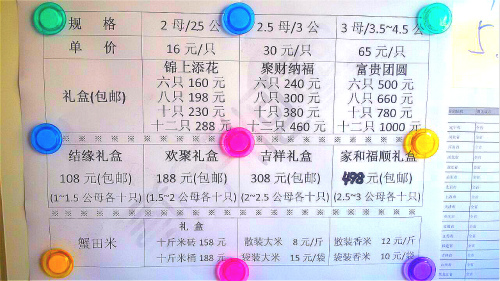 规 格 2 母/25 公 2.5 母/3 公 3 母/3.5~4.5 公
单 价 16 元/只 30 元/只 65 元/只
锦上添花 聚财纳福 富贵团圆
六只 160 元 六只 240 元 六只 500 元
礼盒(包邮) 八只 198 元 八只 300 元 八只 660 元
十只 230 元 十只 380 元 十只 780 元
十二只 288 元 十二只 460 元 十二只 1000 元
※ ※ ※ ※ ※ ※ ※ ※ ※ ※ ※ ※ ※ ※ ※ ※ ※ ※
结缘礼盒 欢聚礼盒 吉祥礼盒 家和福顺礼盒
108 元(包邮) 188 元(包邮) 308 元(包邮) 498 元(包邮)
(1~1.5 公母各十只) (1.5~2 公母各十只) (2~2.5 公母各十只) (2.5~3 公母各十只)
※ ※ ※ ※ ※ ※ ※ ※ ※ ※ ※ ※ ※ ※ ※ ※ ※ ※
礼 盒
蟹田米 十斤米砖 158 元 散装大米 8 元/斤 散装香米 12 元/斤
十斤米桶 188 元 袋装大米 15 元/袋 袋装香米 10 元/袋
5.